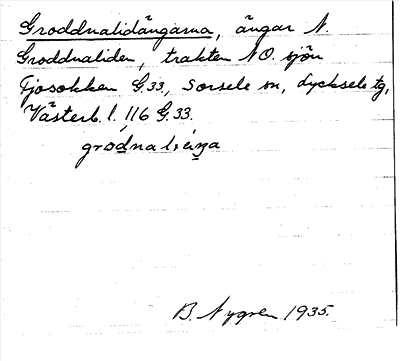 Groddnalidängarna, ängar N.
Groddnaliden, trakten NO. sjön
Gjosokken G 33, Sorsele sn, Lycksele tg,
Västerb. l. 116 G. 33.
B. Nygren 1935.